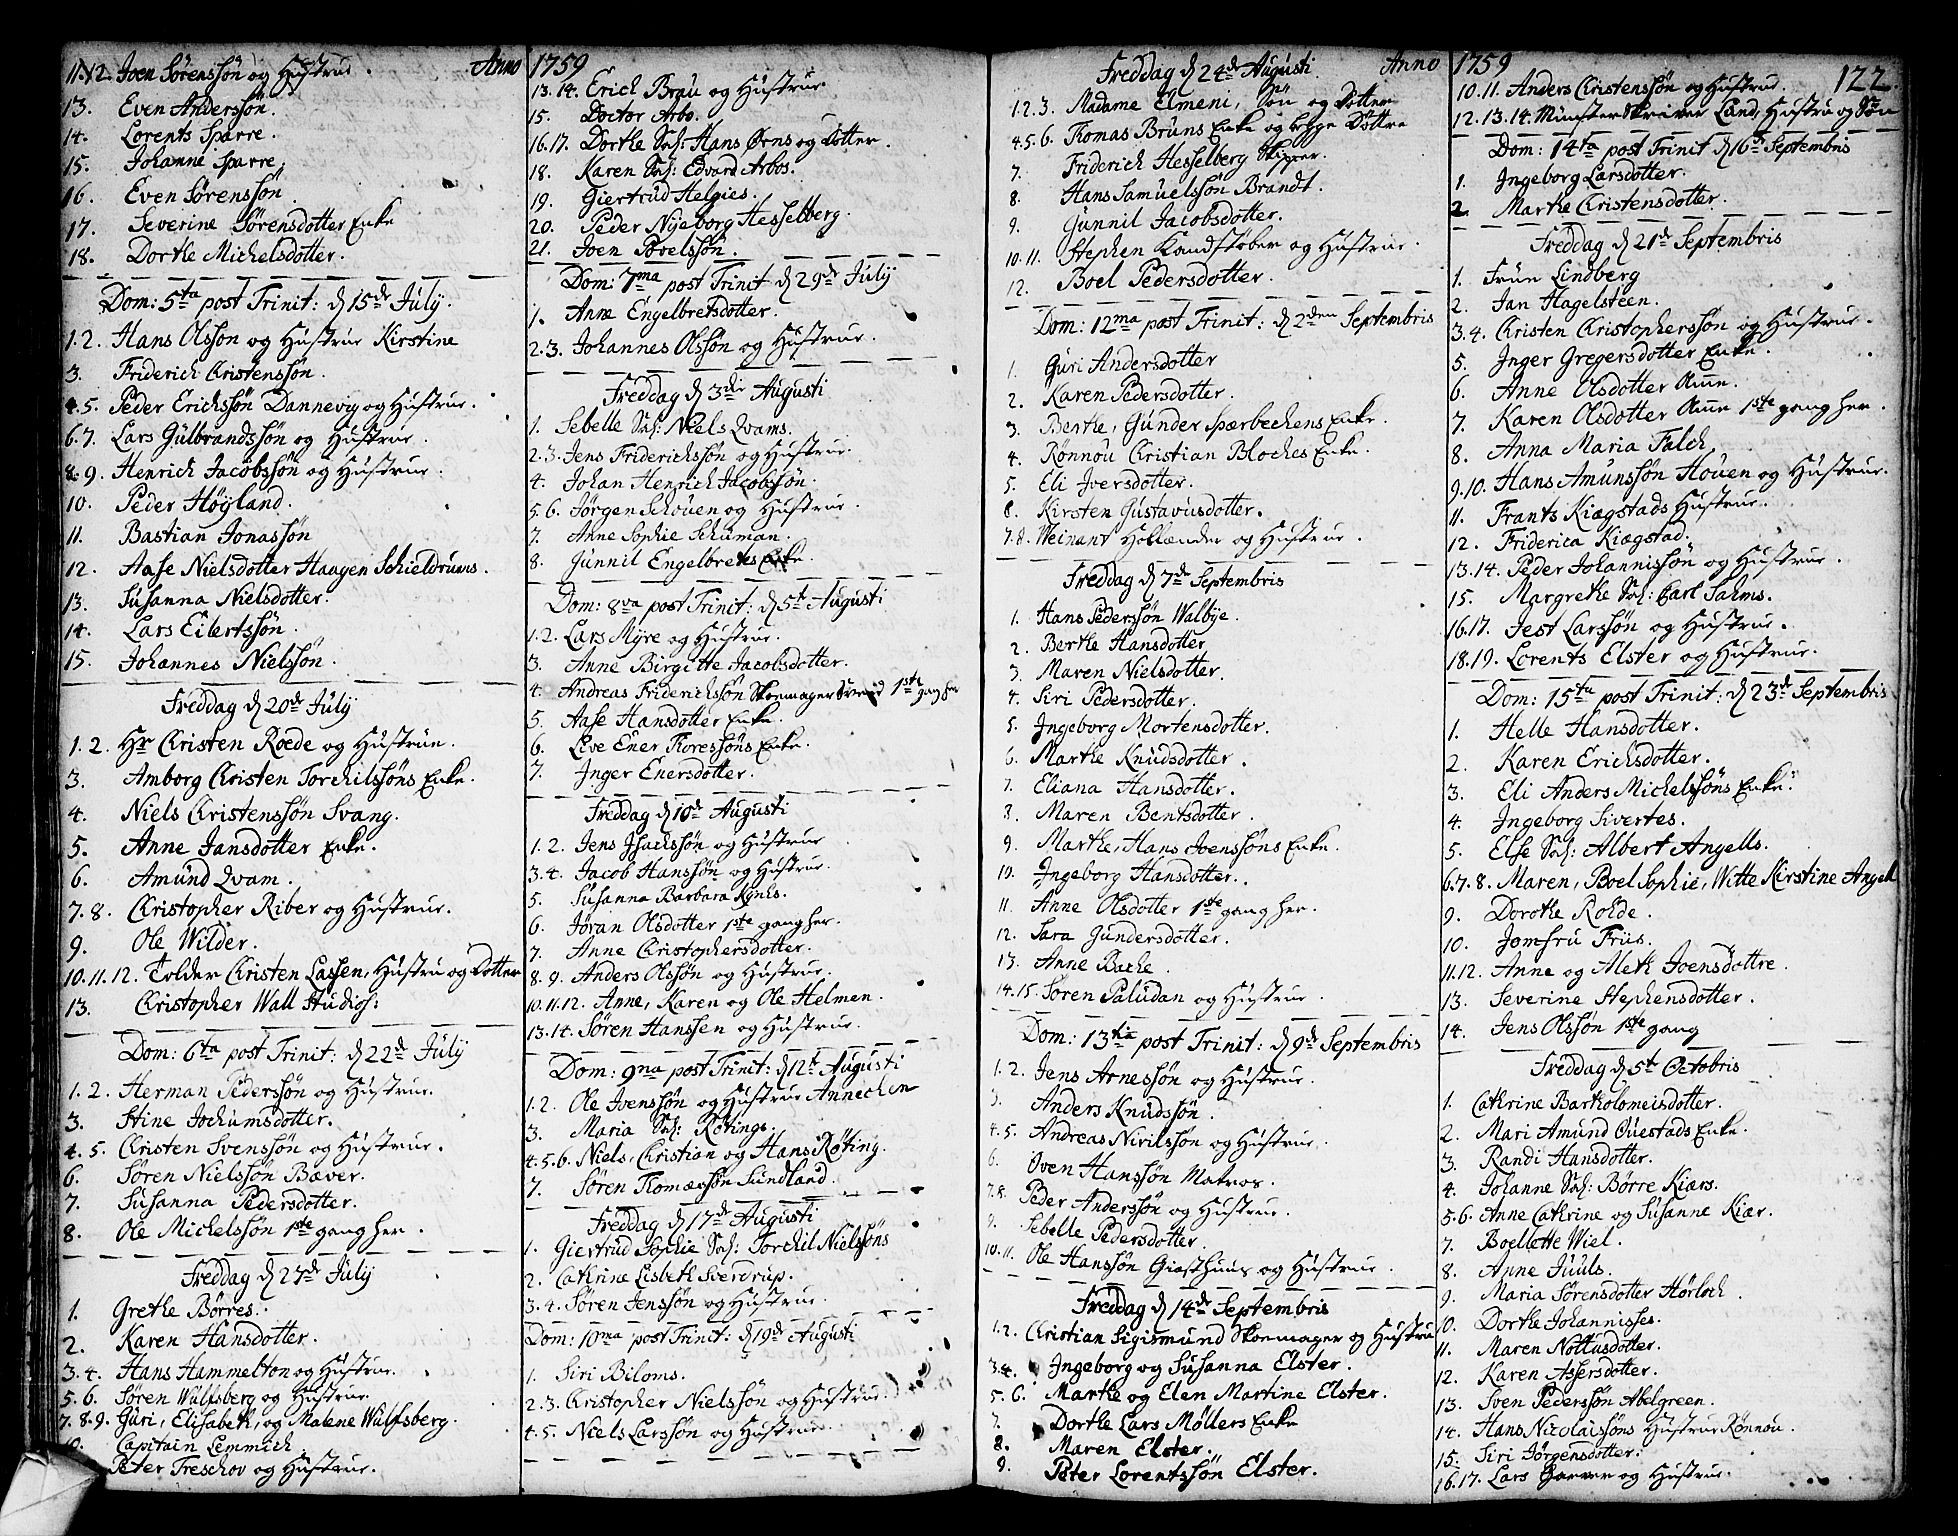 11.12. Joen Sørenssøn og Hustrue.
13. Even Anderssøn.
14. Lorents Sparre.
15. Johanne Sparre.
16. Even Sørenssøn.
17. Severine Sørensdotter Enke
18. Dorthe Michelsdotter.
Dom: 5ta post Trinit: d 15de July.
1.2. Hans Olssøn og Hustrue Kirstine
3. Friderich Christenssøn.
4.5. Peder Erichssøn Dannevig og Hustrue.
6.7. Lars Gulbrandssøn og Hustrue.
8.9. Henrich Jacobssøn og Hustrue.
10. Peder Höyland.
11. Bastian Jonassøn
12. Aase Nielsdotter Haagen Schieldrums.
13. Susanna Nielsdotter.
14. Lars Eilertssøn.
15. Johannes Nielssøn.
Freddag d 20de July
1.2. Hr Christen Roede og Hustrue.
3. Amborg Christen Torchilssøns Enke.
4. Niels Christenssøn Svang.
5. Anne Jansdotter Enke.
6. Amund Qvam.
7.8. Christopher Riber og Hustrue.
9. Ole Wilder.
10.11.12. Tolder Christen Lassen, Hustru og Dotter
13. Christopher Wall Studios:
Dom: 6ta post Trinit: d 22de July
1.2. Herman Pederssøn og Hustrue.
3. Stine Jochumsdotter.
4.5. Christen Svenssøn og Hustrue.
6. Søren Nielssøn Bæver.
7. Susanna Pedersdotter.
8. Ole Michelssøn 1ste gang her.
Freddag d 27de July
1. Grethe Börres.
2. Karen Hansdotter.
3.4. Hans Hammelton og Hustrue.
5.6. Søren Wulfsberg og Hustrue
7.8.9. Guri, Elisabeth, og Malene Wulfsberg.
10. Capitain Lemmich
Peter Treschov og Hustrue.
Anno 1759
13.14. Erich Brau og Hustrue
15. Doctor Arbo.
16.17. Dorthe Sal: Hans Ørns og Dotter.
18. Karen Sal: Edvard Arbos.
19. Giertrud Helgies.
20. Peder Nyeborg Hesselberg.
21. Joen Povelssøn.
Dom: 7ma post Trinit: d 29de July
1. Anne Engelbretsdotter.
2.3. Johannes Olssøn og Hustrue.
Freddag d 3die Augusti
1. Sebelle Sal: Niels Qvams.
2.3. Jens Friderichssøn og Hustrue
4. Johan Henrich Jacobssøn.
5.6. Jørgen Schouen og Hustrue.
7. Anne Sophie Schuman.
8. Gunnil Engelbrets Enke
Dom: 8va post Trinit: d 5t Augusti
1.2. Lars Myre og Hustrue.
3. Anne Birgitte Jacobsdotter.
4. Andreas Friderichssøn Skoemager Svend 1ste gang her
5. Aase Hansdotter Enke.
6. Live Ener Thoressøns Enke.
7. Inger Enersdotter.
Freddag d 10de Augusti
1.2. Jens Isachssøn og Hustrue
3.4. Jacob Hanssøn og Hustrue.
5. Susanna Barbara Kynes.
6. Jøran Olsdotter 1ste gang her.
7. Anne Christophersdotter.
8.9. Anders Olssøn og Hustrue.
10.11.12. Anne, Karen og Ole Helmen.
13.14. Søren Hanssen og Hustrue.
Dom: 9na post Trinit: d 12t Augusti
1.2. Ole Ivenssøn og Hustrue Annechen
3. Maria Sal: Rötings.
4.5.6. Niels, Christian og Hans Röting.
7. Søren Thomæssøn Sundland.
Freddag d 17de Augusti
1. Giertrud Sophie Sal: Torchil Nielssøns
2. Cathrine Lisbeth Sverdrup.
3.4. Søren Jenssøn og Hustrue
Dom: 10ma post Trinit: d 19de Augusti
1. Siri Biloms.
2.3. Christopher Nielssøn og Hustrue.
4.5. Niels Larssøn og Hustrue
Freddag d 24de Augusti Anno 1759
1.2.3. Madame Elmeni, Søn og Dotter
4.5.6. Thomas Bruns Enke og begge Døttre
7. Friderich Hesselberg Skipper.
8. Hans Samuelssøn Brandt.
9. Gunnil Jacobsdotter.
10.11. Stephen Kandstøber og Hustrue.
12. Boel Pedersdotter.
Dom: 12ma post Trinit: d 2den Septembris
1. Guri Andersdotter
2. Karen Pedersdotter.
3. Berthe, Gunder Spærbechens Enke.
4. Rønnou Christian Bloches Enke.
5. Eli Iversdotter.
8. Kirsten Gustavusdotter.
7.8. Weinant Hollænder og Hustrue.
Freddag d 7de Septembris
1. Hans Pederssøn Walbye.
2. Berthe Hansdotter
3. Maren Nielsdotter.
4. Siri Pedersdotter.
5. Ingeborg Mortensdotter.
6. Marthe Knudsdotter.
7. Eliana Hansdotter.
8. Maren Bentsdotter.
9. Marthe, Hans Joenssøns Enke.
10. Ingeborg Hansdotter.
11. Anne Olsdotter 1ste gang her.
12. Sara Gundersdotter.
13. Anne Bache.
14.15. Søren Paludan og Hustrue.
Dom: 13tia post Trinit: d 9de Septembris
1.2. Jens Arnessøn og Hustrue.
3. Anders Knudssøn.
4.5. Andreas Nirilssøn og Hustrue.
6. Oven Hanssøn Matros.
7.8. Peder Anderssøn og Hustrue.
9. Sebelle Pedersdotter.
10.11. Ole Hanssøn Giæsthuus og Hustrue.
Freddag d 14de Septembris
1.2. Christian Sigismund Skoemager og Hustru
3.4. Ingeborg og Susanna Elster.
5.6. Marthe og Elen Martine Elster.
7. Dorthe Lars Møllers Enke
8. Maren Elster.
9. Peter Lorentssøn Elster.
122.
10.11. Anders Christenssøn og Hustrue.
12.13.14. Mynsterskriver Land, Hustru og Søn
Dom: 14ta post Trinit d 16de Septembris
1. Ingeborg Larsdotter.
2. Marthe Christensdotter.
Freddag d 21de Septembris
1. Frue Lindberg
2. Jan Hagelsteen.
3.4. Christen Christopherssøn og Hustrue.
5. Inger Gregersdotter Enke.
6. Anne Olsdotter Amme.
7. Karen Olsdotter Amme 1ste gang her.
8. Anna Maria Falch.
9.10. Hans Amunssøn Houen og Hustrue.
11. Frants Kiægstads Hustrue.
12. Friderica Kiægstad.
13.14. Peder Johannissøn og Hustrue.
15. Margrethe Sal: Carl Sahms.
16.17. Jest Larssøn og Hustrue.
18.19. Lorents Elster og Hustrue.
Dom: 15ta post Trinit: d 23de Septembris
1. Helle Hansdotter.
2. Karen Erichsdotter.
3. Eli Anders Michelssøns Enke.
4. Ingeborg Sivertes.
5. Else Sal: Albert Angells.
6.7.8. Maren, Boel Sophie, Witte Kirstine Angell
9. Dorothe Rohde.
10. Jomfru Friis.
11.12. Anne og Aleth Joensdøttre.
13. Severine Stephensdotter.
14. Jens Olssøn 1ste gang
Freddag d 5t Octobris
1. Cathrine Bartholomeisdotter.
2. Mari Amund Ouestads Enke.
3. Randi Hansdotter.
4. Johanne Sal: Börre Kiærs.
5.6. Anne Cathrine og Susanne Kiær.
7. Boellette Wiel.
8. Anne Juuls.
9. Maria Sørensdotter Hörloch.
10. Dorthe Johannisses.
11. Maren Nottusdotter.
12. Karen Assersdotter.
13. Sven Pederssøn Abelgreen.
14. Hans Nicolaissøns Hustrue Rønnou.
15. Siri Jørgensdotter.
16.17. Lars Garver og Hustrue.